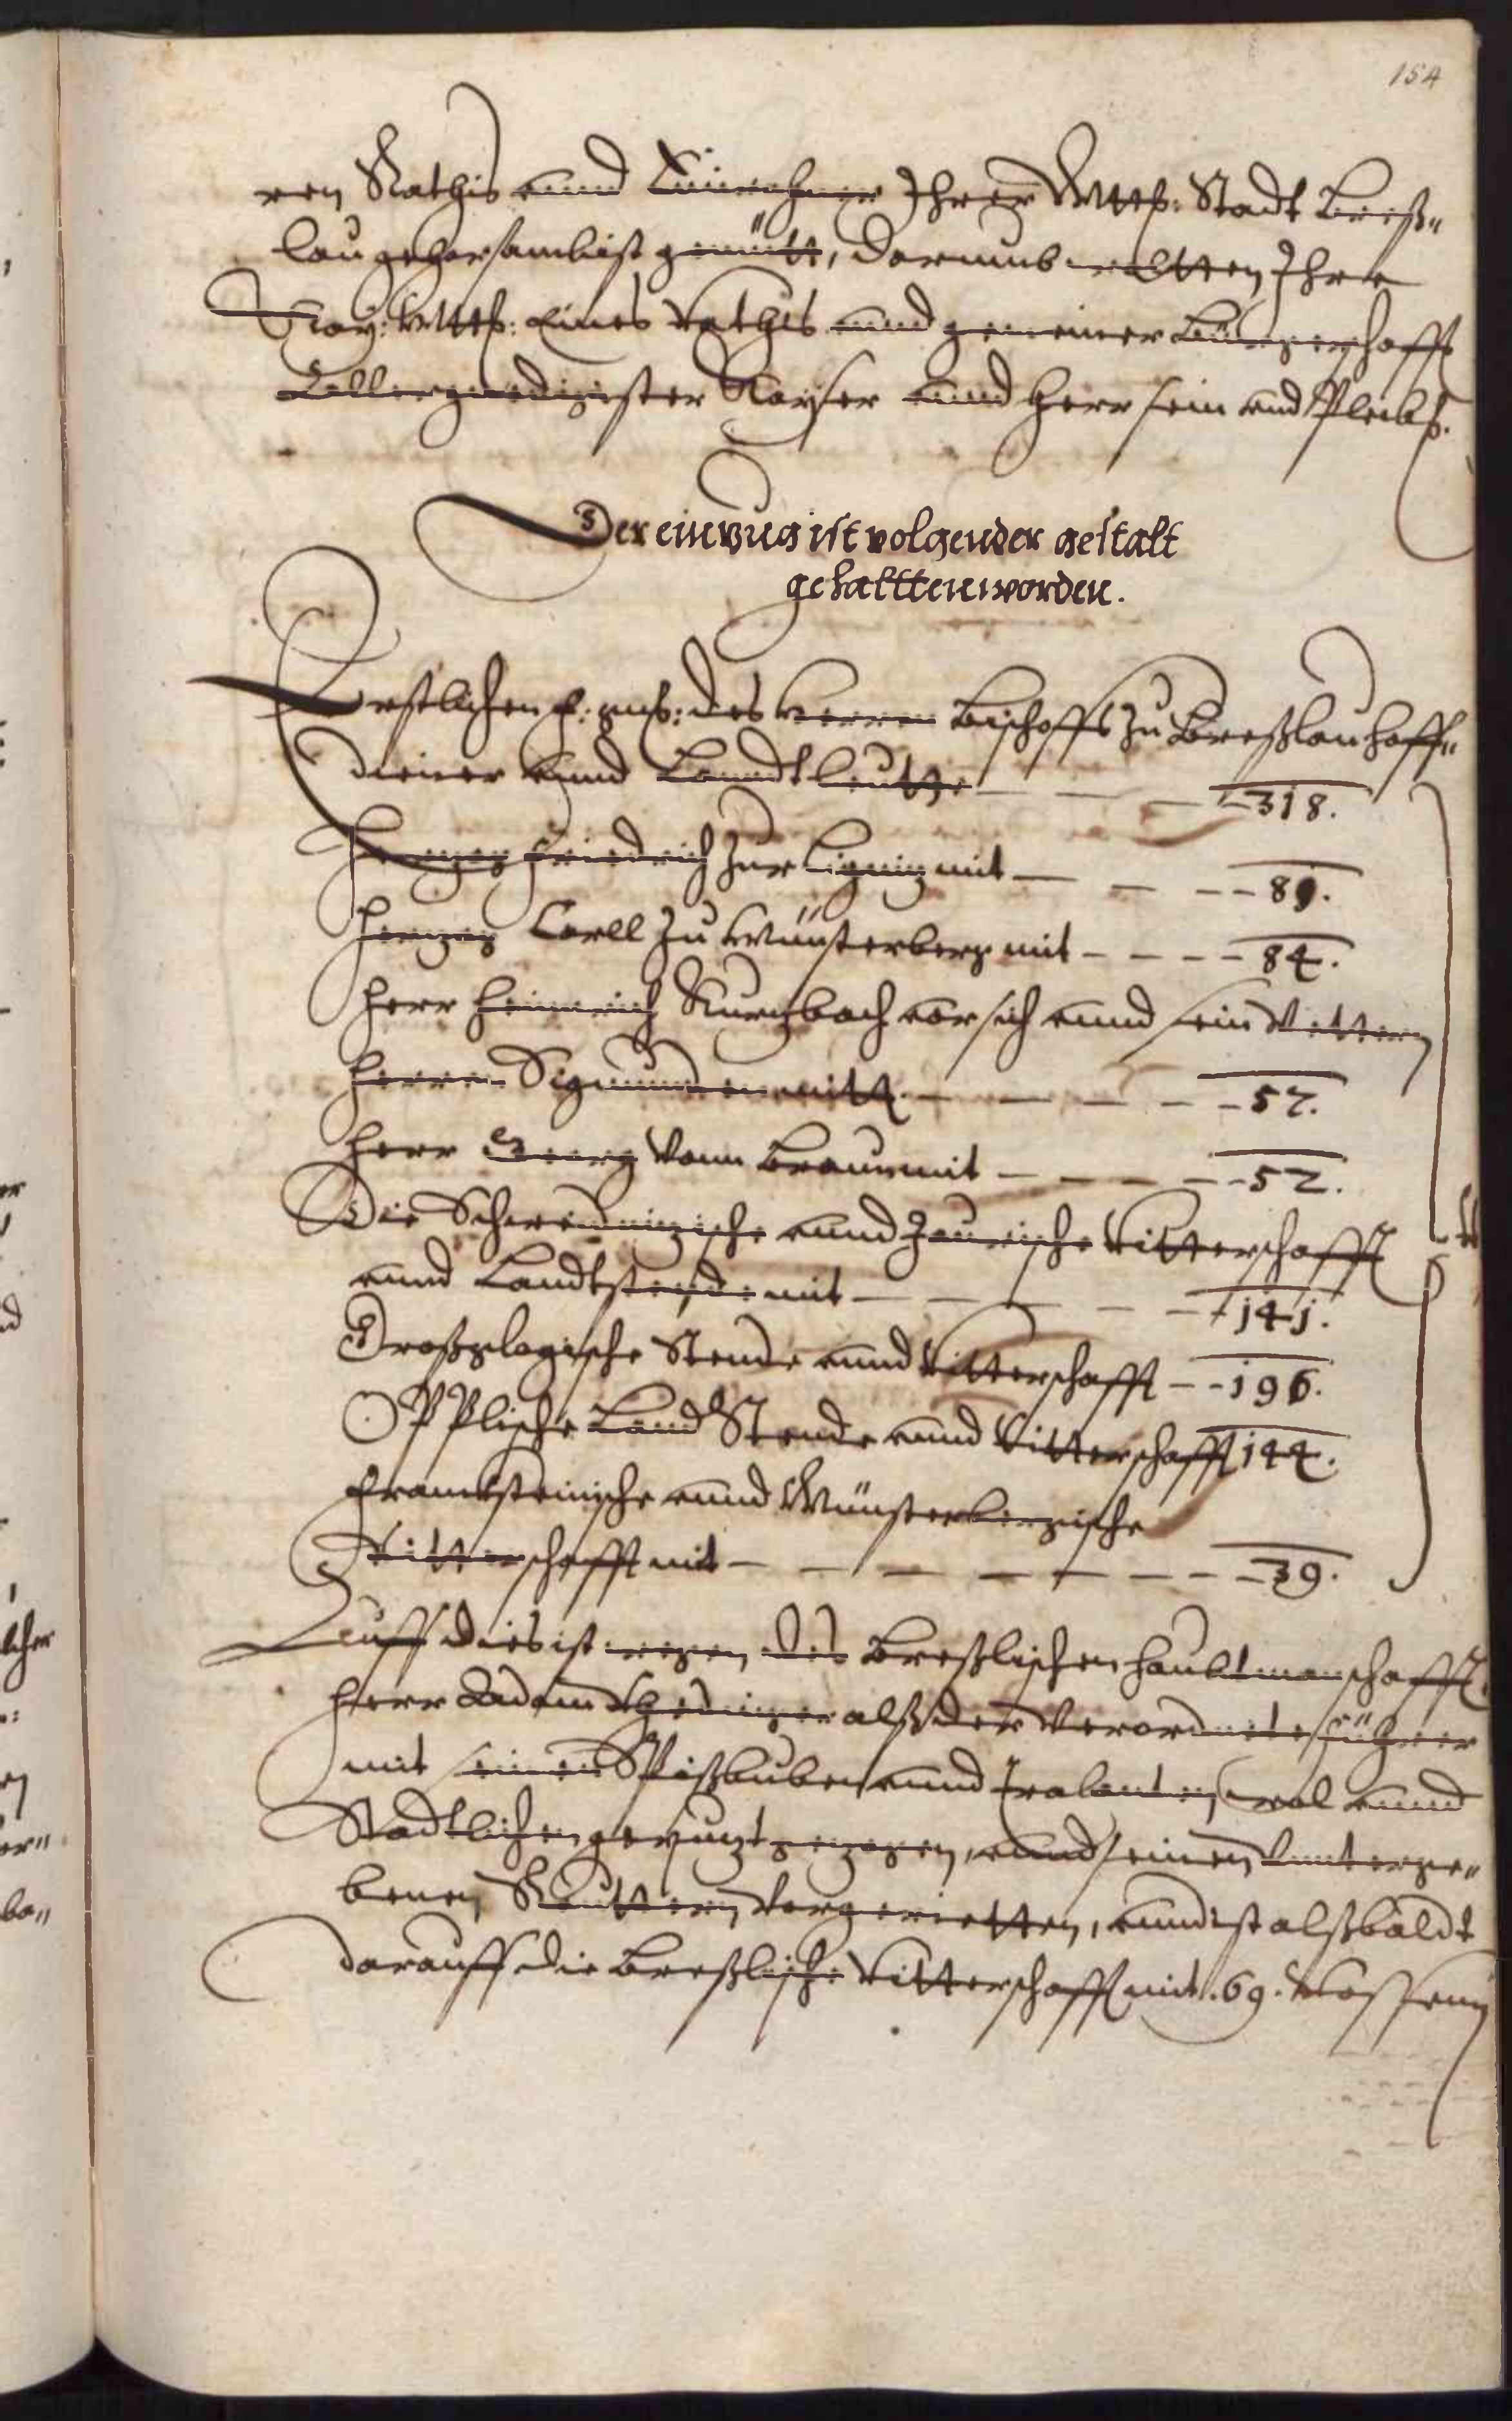 154
ren Rathis vnnd Einwohner Ihrer Mtt: Stadt Breß„
lau gehorsambist gemütt, darumb wolltten Ihre
Kay: Mtt: Eines Rathis vnnd gemeiner Bürgerschafft
Allergnedigister Kayser vnnd Herr sein vnd Pleib.
Der einzug ist volgender gestalt
gehalttten worden.
Erstlichen F: gn: des Herren Bischoffs zu Breßlau hoff„
diener vnnd Lanndtleutthe – – – 318.
Herzog Friedrich zur Lignig mit – – – 89.
Herzog Carll zu Münsterberg mit – – – – 84.
Herr Heinrich Kurzbach vor sich vnnd sein Vettern
Herrn Sigmunden mitt – – – – – 52.
Herr Georg vonn Braun mit – – – – 52.
Die Schweidnizische vnnd Jaurische Ritterschafft
vnnd Landtstende mit – – – – – 141.
Großglogische Stende vnnd Ritterschafft – – 196.
OPPlische Land Stende vnnd Ritterschafft 144.
Francksteinische vnnd Münsterbergische
Ritterschafft mit – – – – – – – 39.
Auff dies ist wegen des Breßlischen Haubtmanschafft
Herr Adam alß der Verordnete führer
mit seinen Spißbuben vnnd Trabanten, wol vnnd
Stadtlichen gepuzt gezogen, vnnd seinen Vnnterge„
benen Reuttern vorgerietten, vnnd ist alßbaldt
darauff die Breßlische Ritterschafft mit .69. Rossenn